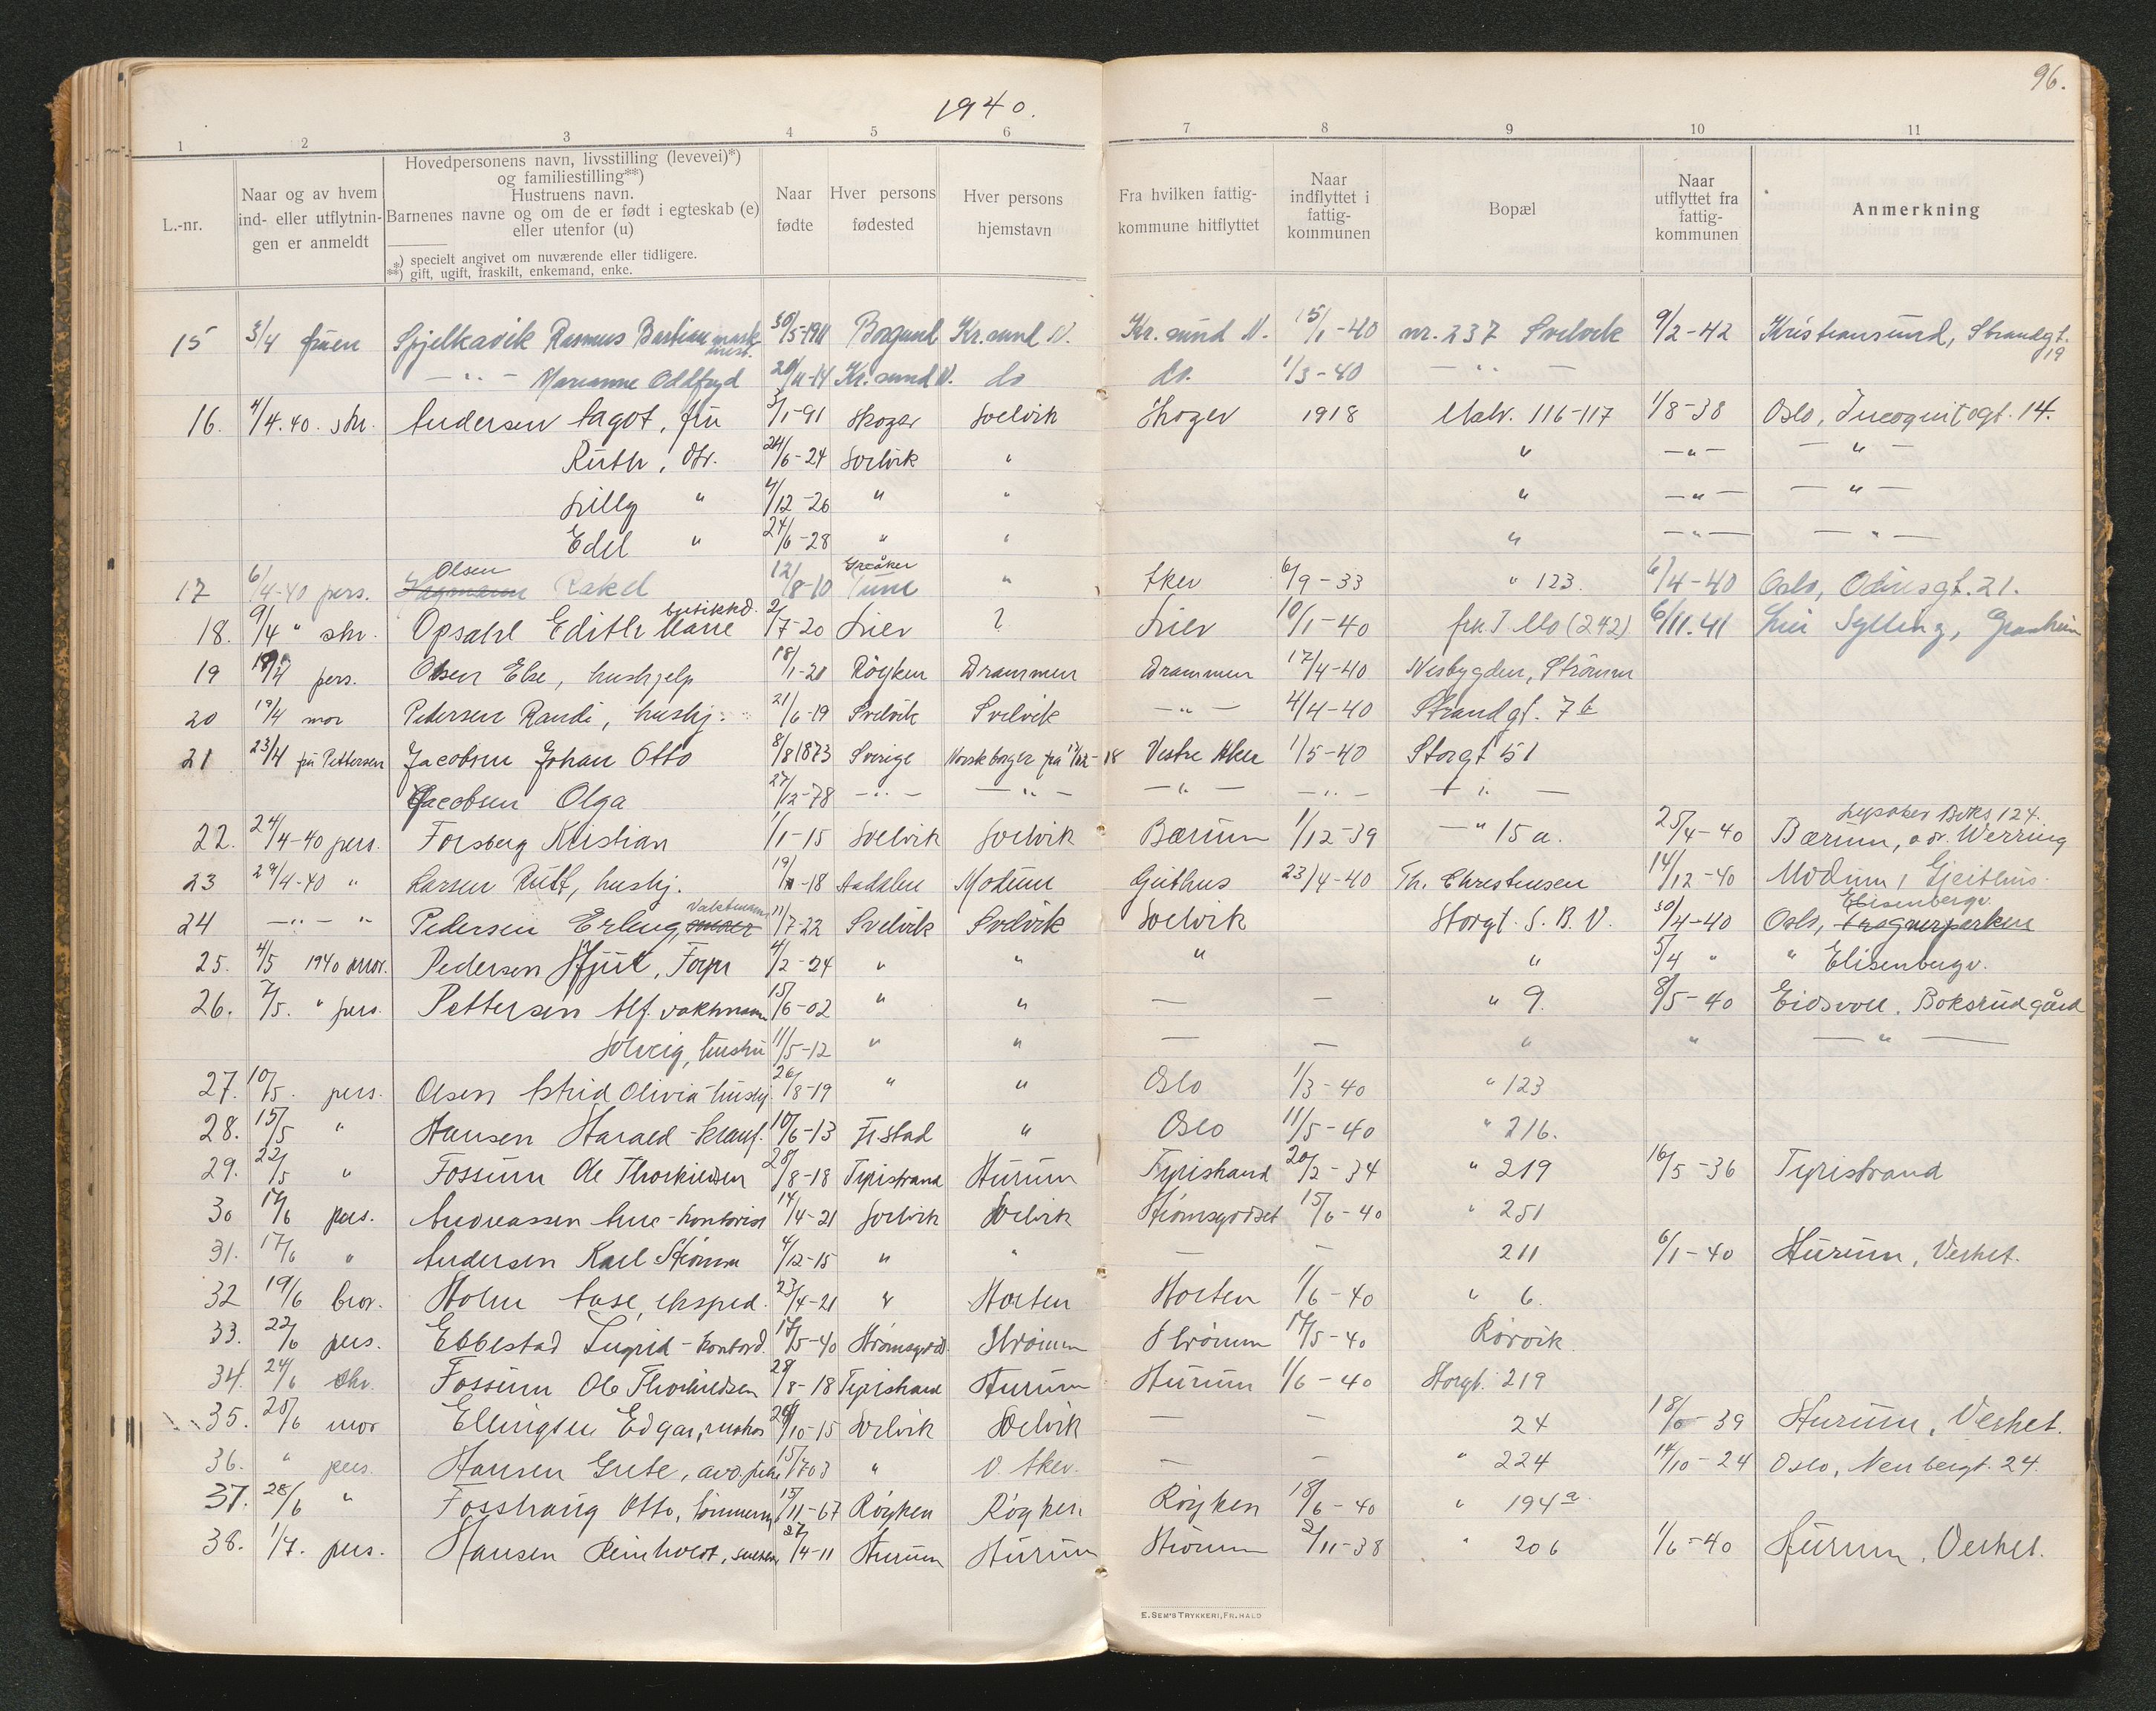 1940.
96.
1 2 3 4 5 6 7 8 9 10 11
L.-nr.
Naar og av hvem
ind- eller utflytnin-
gen er anmeldt
Hovedpersonens navn, livsstilling (levevei)*)
og familiestilling**)
Hustruens navn.
Barnenes navne og om de er født i egteskab (e)
eller utenfor (u)
*) specielt angivet om nuværende eller tidligere.
**) gift, ugift, fraskilt, enkemand, enke.
Naar
fødte
Hver persons
fødested
Hver persons
hjemstavn
Fra hvilken fattig-
kommune hitflyttet
Naar
indflyttet i
fattig-
kommunen
Bopæl
Naar
utflyttet fra
fattig-
kommunen
Anmerkning
15 3/4 fruen Spjelkavik Rasmus Bastian mask. mest. 30/5-1911 Borgund Kr.sund N. Kr.sund N. 15/1-40 nr. 237 Svelvik 9/2-42 Kristiansund, Strandgt. 19
— " — Marianne Oddfryd 20/11-14 Kr.sund N. do do. 1/3-40 — " —
16. 4/4.40. skr. Andersen Aagot, fru 3/1-91 Skoger Svelvik Skoger 1918 Matr. 116-117 1/8-38 Oslo, Incognitogt. 14.
Ruth, dtr. 24/6-24 Svelvik " " — " — — " —
Lilly " 4/12-26 " " " — " — — " —
Edel " 24/6-28 " " " — " — — " —
17 6/4-40 pers. Olsen Rakel 12/8-10 Greåker Tune " Aker 6/9-33 " 123 6/4-40 Oslo, Odinsgt. 21.
18. 9/4 " skr. Opsahl Edith Marie butikkd. 2/7-20 Lier ? Lier 10/1-40 frk. I. Mo (242) 6/11.41 Lier Sylling, Granheim
19 18/4 pers. Olsen Else, hushjelp 18/1-20 Röyken Drammen Drammen 17/4-40 Nesbygden, Strömm
20 19/4 mor Pedersen Randi, hushj. 21/6-19 Svelvik Svelvik — " — 4/4-40 Strandgt. 7b
21 23/4 fru Pettersen Jacobsen Johan Otto 8/8 1873 Sverige Norsk borger fra 17/12-18 Vestre Aker 1/5-40 Storgt 51
Jacobsen Olga 27/12-78 — " — — " — — " — — " — — " —
22. 24/4-40 pers. Forsberg Kristian 1/1-15 Svelvik Svelvik Bærum 1/12-39 — " 15 a. 25/4-40 Bærum, adr. Werring Lysaker Boks 124.
23 29/4-40 " Larsen Rutt, hushj. 19/1-18 Aadalen Modum Geithus 23/4-40 Th. Christensen 14/12-40 Modum, Gjeithus
24 — " — " Pedersen Erling, Vaktmann 11/7-22 Svelvik Svelvik Svelvik Storgt. S. B. V. 30/4-40 Oslo, Frognerparken Elisenbergv.
25. 4/5 1940 mor. Pedersen 4/2-24 " " " " 5/4 " " Elisenbergv.
26. 7/5. " pers. Pettersen Alf. vaktmann 15/6-02 " " — — " 9. 8/5-40 Eidsvoll, Boksrud gård
Solveig, hustru 11/5-12 " " — — " " — " —
27. 10/5. pers. Olsen Astrid Olivia - hushj. 26/8-19 " " Oslo 1/3-40 " 123
28. 15/5 " Hansen Harald - 10/6-13 Fr.stad " Oslo 11/5-40 " 216.
29. 22/5 " Fossum Ole Thorkildsen 28/8-18 Tyristrand Hurum Tyristrand 20/2-34 " 219 16/5-36 Tyristrand
30 14/6 pers. Andreassen Anne - kontorist 14/4-21 Svelvik Svelvik Strömsgodset 15/6-40 " 251
31. 17/6 " Andersen Karl Strömm 4/12-15 " " — — 211 6/1-40 Hurum, Verket.
32 19/6 bror. Holm Aase, eksped. 23/4-21 " Horten Horten 1/6-40 " 6.
33. 22/6 pers. Ebbestad Ingrid - kontord. 17/5-40 Strömsgods Strömm Strömm 17/5-40 Rörvik
34. 24/6 skr. Fossum Ole Thorkildsen 28/8-18 Tyristrand Hurum Hurum 1/6-40 Storgt. 219
35. 25/6 mor Ellingsen Edgar, 29/10-15 Svelvik Svelvik — — 24 18/6-39 Hurum, Verket.
36. " pers. Hansen Grete, 15/1703 " V. Aker. — — " 224 14/10-24 Oslo, Neubergt. 24.
37. 28/6 " Fosshaug Otto, tömmerm. 15/11-67 Röyken Röyken Röyken 18/6-40 " 194 a.
38. 1/7. pers. Hansen Reinholdt, 27/4-11 Hurum Hurum Strömm 2/11-38 " 206 1/6-40 Hurum, Verket.
E. SEM'S TRYKKERI, FR.HALD